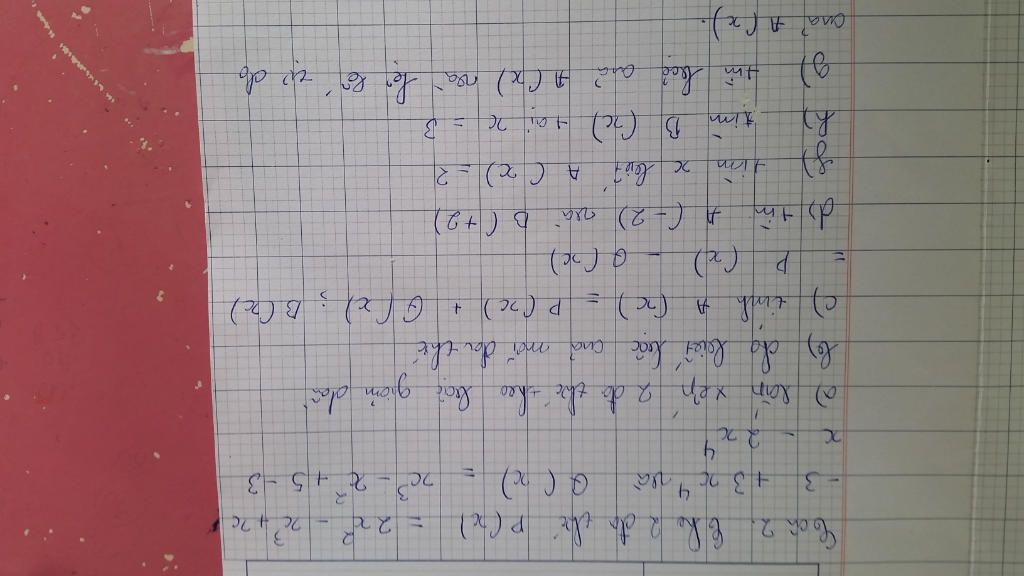 Bài 2. Cho 2 đa thức P(x) = 2x² - x³ + x
- 3 + 3x⁴ và Q(x) = x³ - x² + 5 - 3
x - 2x⁴
a) sắp xếp 2 đa thức theo bậc giảm dần
b) cho biết bậc của mỗi đa thức
c) tính A(x) = P(x) + Q(x) ; B(x)
= P(x) - Q(x)
d) tìm A(-2) và B(+2)
g) tìm x biết A(x) = 2
h) tìm B(x) tại x = 3
g) tìm bậc của A(x) và hệ số tự do
của A(x).